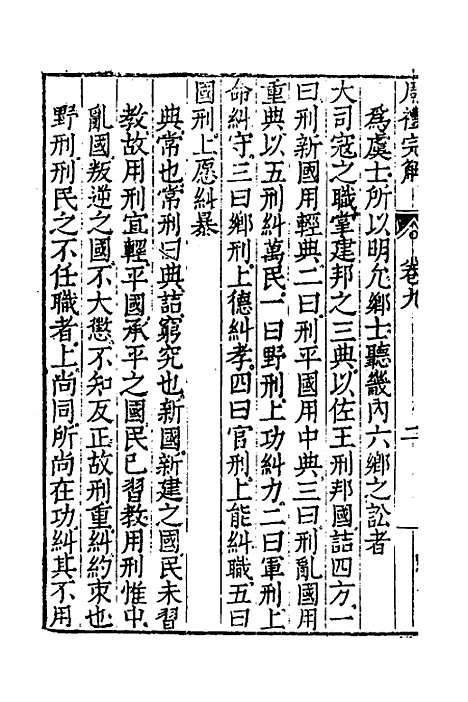 周禮完解
卷九
二
為虞士所以明允鄉士聽畿內六鄉之訟者
大司寇之職掌建邦之三典以佐王刑邦國詰四方一
曰刑新國用輕典二曰刑平國用中典三曰刑亂國用
重典以五刑糾萬民一曰野刑上功糾力二曰軍刑上
命糾守三曰鄉刑上德糾孝四曰官刑上能糾職五曰
國刑上愿糾暴
典常也常刑曰典詰窮究也新國新建之國民未習
教故用刑宜輕平國承平之國民已習教用刑惟中
亂國叛逆之國不大懲不知反正故刑重糾約束也
野刑刑民之不任職者上尚同所尚在功糾其不用